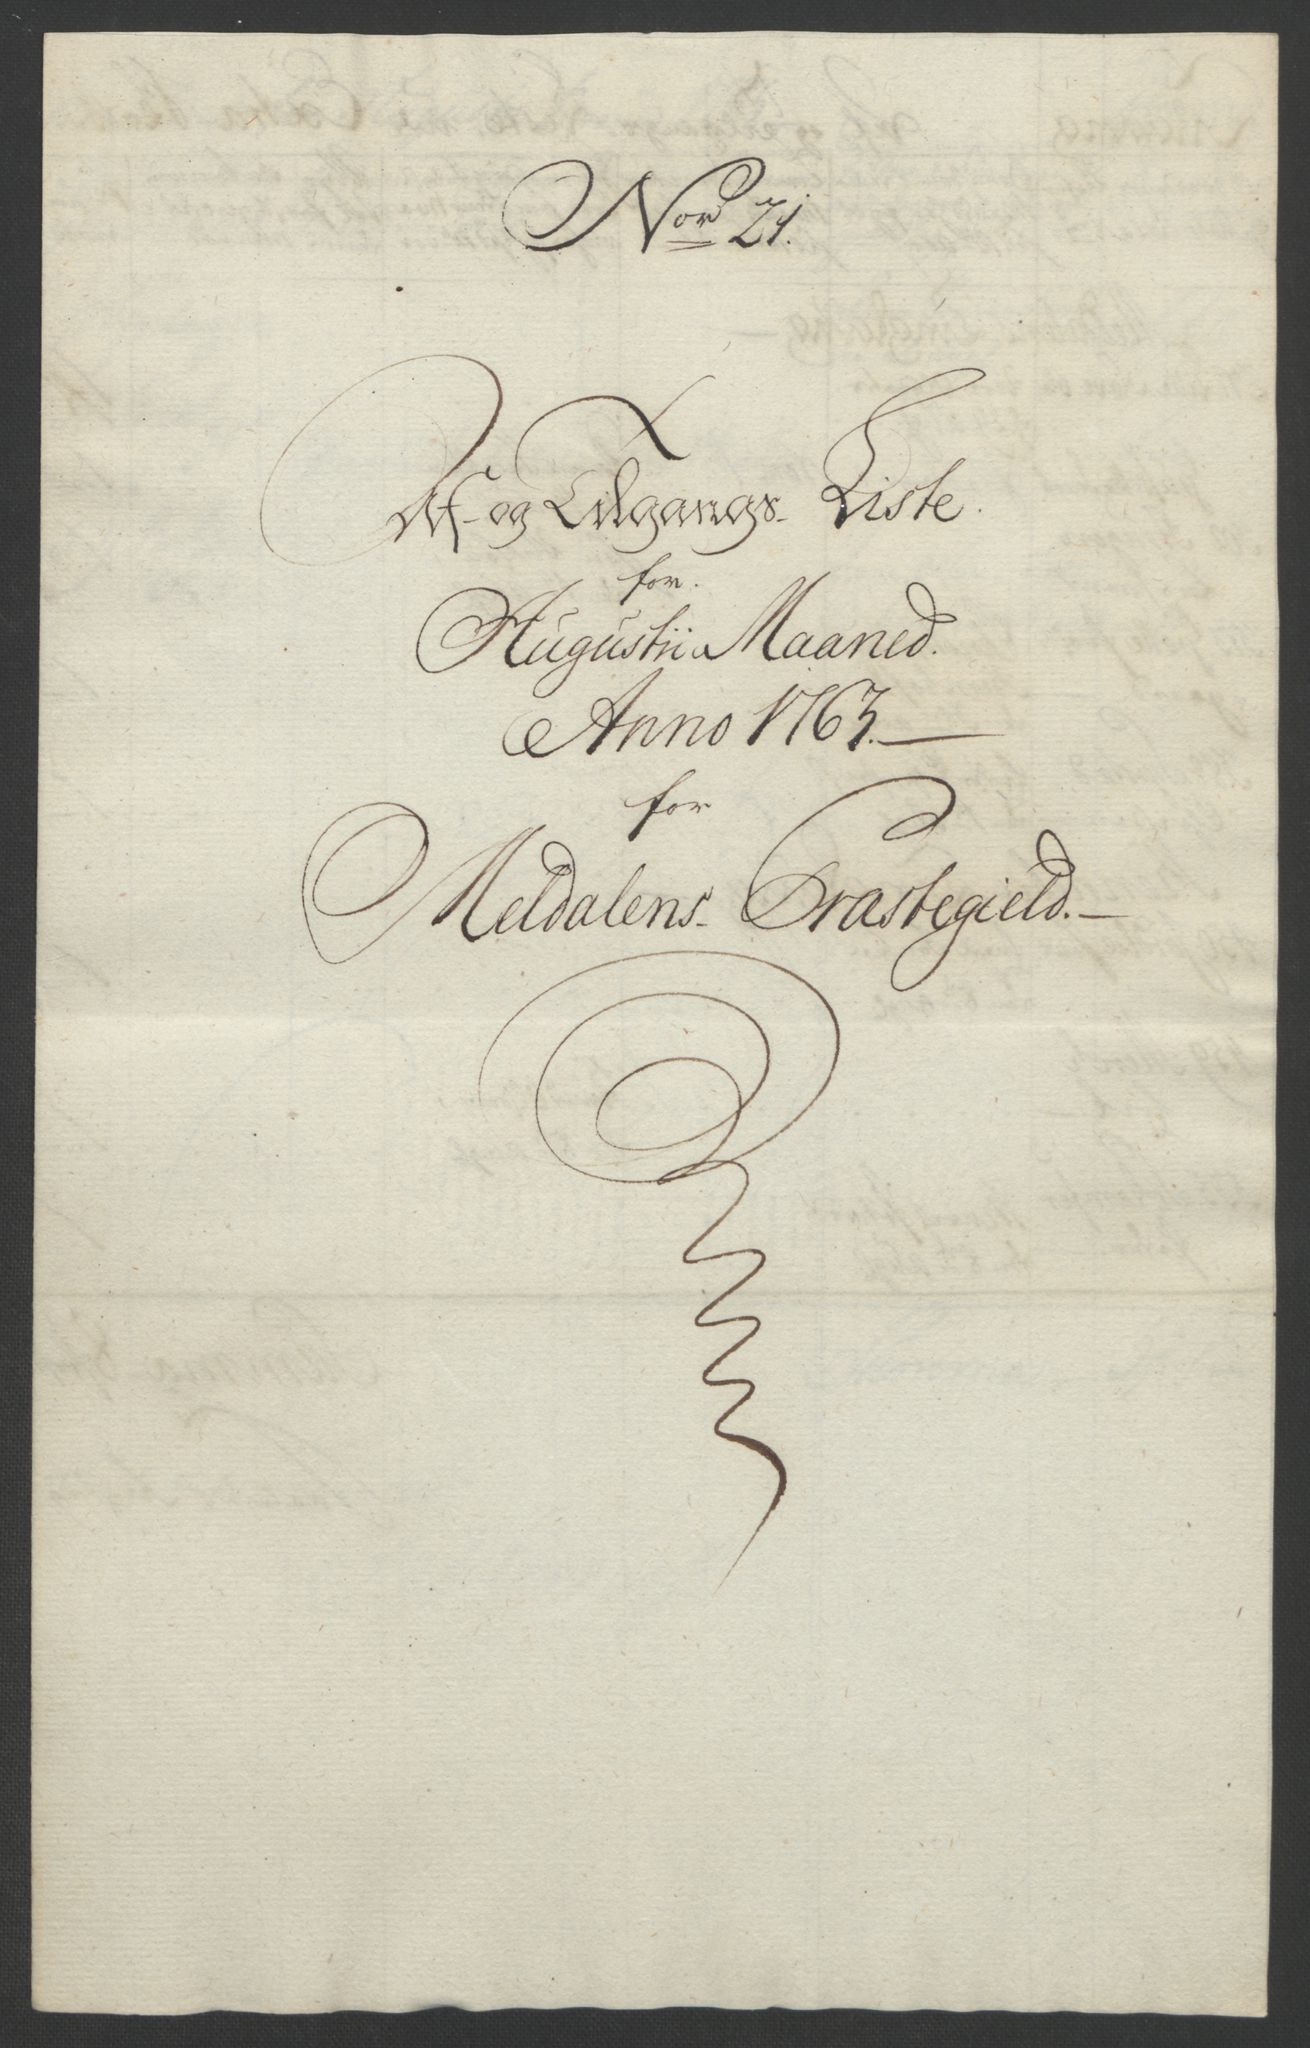 Nor 21.
Af- og Tilgangs- Liste.
for.
Augustii Maaned.
Anno 1763.
for
Meldalens Præstegield.